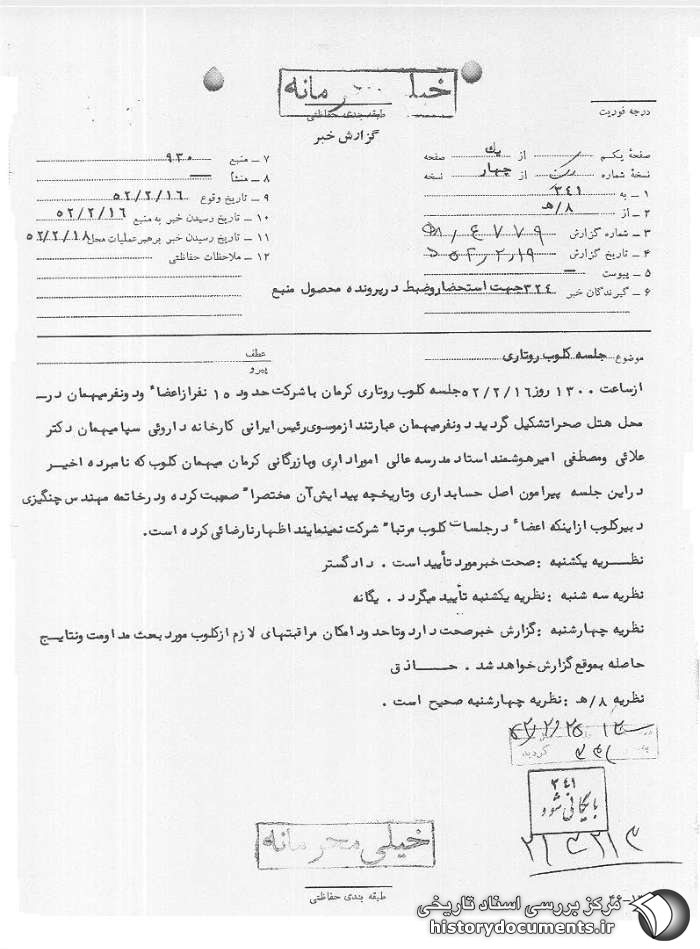 خیلی محرمانه
طبقه بندی حفاظتی
گزارش خبر
درجه فوریت
صفحهٔ یکم از یک صفحه
نسخهٔ شماره از چهار نسخه
۱ ـ به ۳۴۱
۲ ـ از ۸/هـ
۳ ـ شماره گزارش ۶۷۷۹/۸هـ
۴ ـ تاریخ گزارش ۵۲/۲/۱۹
۵ ـ پیوست —
۶ ـ گیرندگان خبر ۳۲۴جهت استحضاروضبط درپرونده محصول منبع
۷ ـ منبع ۹۳۰
۸ ـ منشأ —
۹ ـ تاریخ وقوع ۵۲/۲/۱۶
۱۰ ـ تاریخ رسیدن خبر به منبع ۵۲/۲/۱۶
۱۱ ـ تاریخ رسیدن خبر برهبرعملیات محل ۵۲/۲/۱۸
۱۲ ـ ملاحظات حفاظتی
موضوع جلسه کلوب روتاری
عطف
پیرو
ازساعت ۱۳۰۰ روز ۵۲/۲/۱۶جلسه کلوب روتاری کرمان باشرکت حدود ۱۵ نفرازاعضاء ودونفرمیهمان درـ
محل هتل صحراتشکیل گردید دونفرمیهمان عبارتند ازموسوی رئیس ایرانی کارخانه داروئی سپا میهمان دکتر
علائی ومصطفی امیرهوشمند استاد مدرسه عالی اموراداری وبازرگانی کرمان میهمان کلوب که نامبرده اخیر
دراین جلسه پیرامون اصل حسابداری وتاریخچه پیدایش‌آن مختصراً صحبت کرده ودرخاتمه مهندس چنگیزی
دبیرکلوب ازاینکه اعضاء درجلسات کلوب مرتباً شرکت نمینمایند اظهارنارضائی کرده است.
نظریه یکشنبه : صحت خبرمورد تأیید است . دادگستر
نظریه سه شنبه : نظریه یکشنبه تأیید میگردد . یگانه
نظریه چهارشنبه : گزارش خبرصحت دارد وتاحدود امکان مراقبتهای لازم ازکلوب مورد بحث مداومت ونتایج
حاصله بموقع گزارش خواهد شد . حاذق
نظریه ۸/هـ : نظریه چهارشنبه صحیح است .
گردید
۳۴۱
بایگانی شود
خیلی محرمانه
طبقه بندی حفاظتی
مرکز بررسی اسناد تاریخی
historydocuments.ir